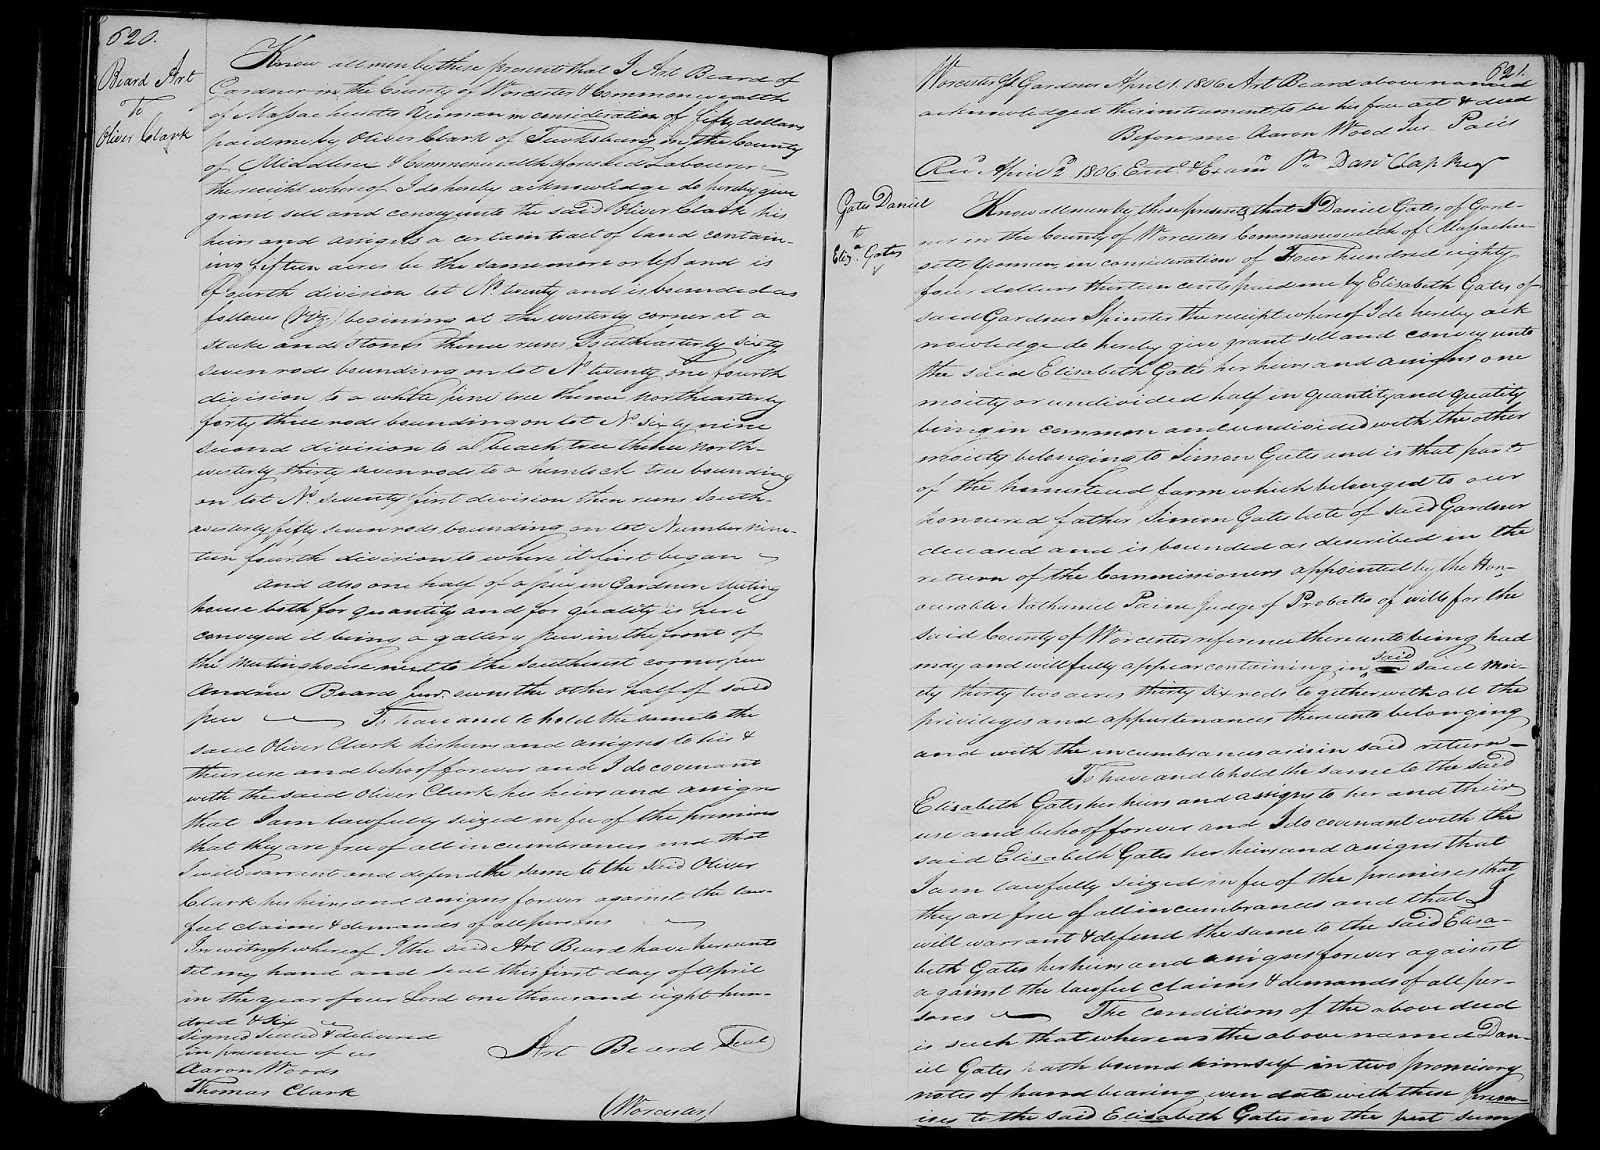 620.
Beard Art
To
Oliver Clark
Know all men by these presents that I Art Beard of
Gardner in the County of Worcester & Commonwealth
of Massachusetts Yeoman in consideration of fifty dollars
paid me by Oliver Clark of Tewksbury in the County
of Middlesex & Commonwealth aforesaid Labourer
the receipt whereof I do hereby acknowledge do hereby give
grant sell and convey unto the said Oliver Clark his
heirs and assigns a certain tract of land contain-
ing fifteen acres be the same more or less and is
fourth division lot No. twenty and is bounded as
follows (viz) begining at the westerly corner at a
stake and stones thence runs Southeasterly sixty
seven rods bounding on lot No. twenty one fourth
division to a white pine tree thence northeasterly
forty three rods bounding on lot No sixty nine
second division to a beach tree thence north-
westerly thirty seven rods to a hemlock tree bounding
on lot No seventy first division then runs South-
westerly fifty seven rods bounding on lot Number nine-
teen fourth division to where it first began
and also one half of a pew in Gardner Meeting
house both for quantity and for quality is here
conveyed it being a gallery pew in the front of
the meetinghouse next to the southwest corner pew
Andrew Beard Junr. owns the other half of said
pew To have and to hold the same to the
said Oliver Clark his heirs and assigns to his &
their use and behoof forever and I do covenant
with the said Oliver Clark his heirs and assigns
that I am lawfully seized in fee of the premises
that they are free of all incumbrances and that
I will warrant and defend the same to the said Oliver
Clark his heirs and assigns forever against the law-
ful claims & demands of all persons
In witness whereof I the said Art Beard have hereunto
set my hand and seal this first day of April
in the year of our Lord one thousand eight hun-
dred & six
Signed Sealed & delivered
in presence of us
Aaron Woods
Thomas Clark
Art Beard Seal
(Worcester)
621.
Worcester ss Gardner April 1. 1806 Art Beard above named
acknowledged this instrument to be his free act & deed
Before me Aaron Wood Jus. Pacis
Recd. April 1806 Entd. & Examd. Pr. Danl Clap Regr
Gates Daniel
to
Eliza. Gates
Know all men by these presents that I Daniel Gates of Gard-
ner in the County of Worcester Commonwealth of Massachu-
setts Yoeman, in consideration of Four hundred eighty
four dollars thirteen cents paid me by Elisabeth Gates of
said Gardner Spinster the receipt whereof I do hereby ack
nowledge do hereby give grant sell and convey unto
the said Elisabeth Gates her heirs and assigns one
moiety or undivided half in quantity and quality
being in common and undivided with the other
moiety belonging to Simon Gates and is that part
of the homestead farm which belonged to our
honoured father Simon Gates late of said Gardner
deceased and is bounded as described in the
return of the Commissioners appointed by the Hon-
ourable Nathaniel Paine Judge of Probate of wills for the
said County of Worcester reference thereunto being had
may and will fully appear containing in said said moi-
ety thirty two acres thirty six rods together with all the
privileges and appurtenances thereunto belonging
and with the incumbrances as is in said return—
To have and to hold the same to the said
Elisabeth Gates her heirs and assigns to her and their
use and behoof forever and I do covenant with the
said Elisabeth Gates her heirs and assigns that
I am lawfully seized in fee of the premises that
they are free of all incumbrances and that I
will warrant & defend the same to the said Elisa-
beth Gates her heirs and assigns forever against
against the lawful claims & demands of all per-
sons The conditions of the above deed
is such that whereas the above named Dan-
iel Gates hath bound himself in two promisory
notes of hand bearing even date with these Prem-
ises to the said Elisabeth Gates in the just sum